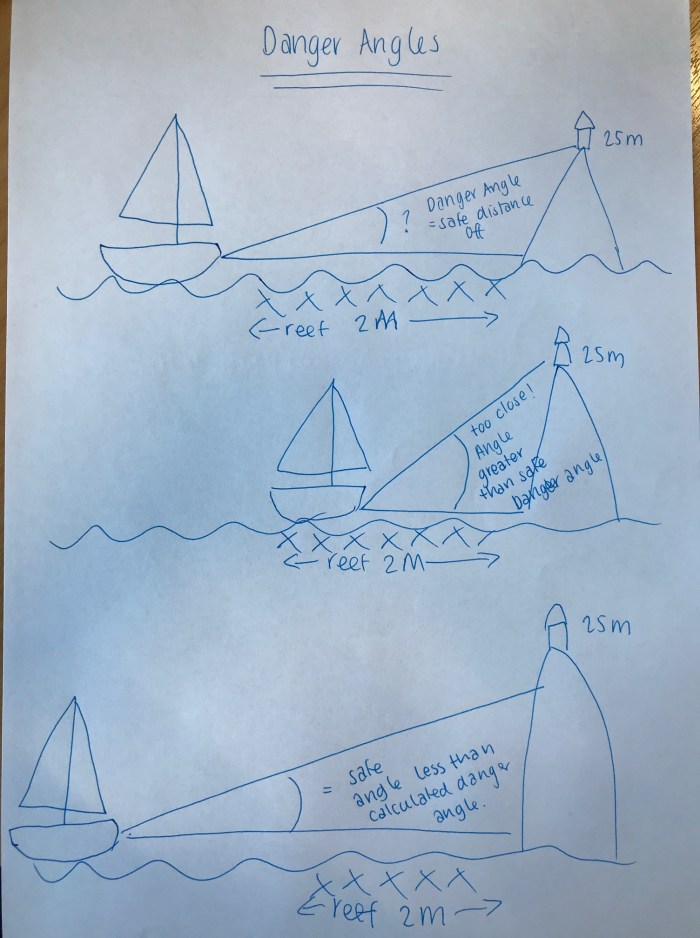 Danger Angles
25m
? Danger Angle
= safe distance
off
X X X X X X X
reef 2M
25m
too close!
Angle
greater
than safe
Danger angle
X X X X X X X
reef 2M
25m
= safe
angle less than
calculated danger
angle.
X X X X X
reef 2m